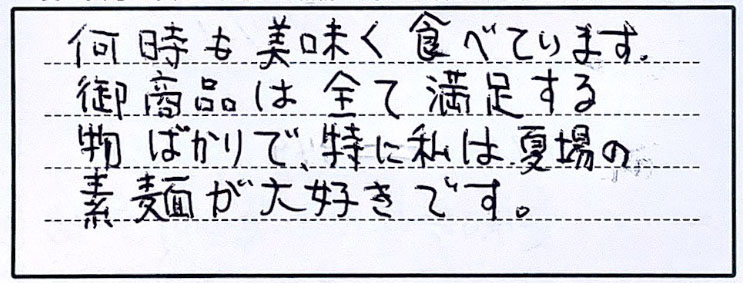 何時も美味く食べています。
御商品は全て満足する
物ばかりで、特に私は夏場の
素麺が大好きです。